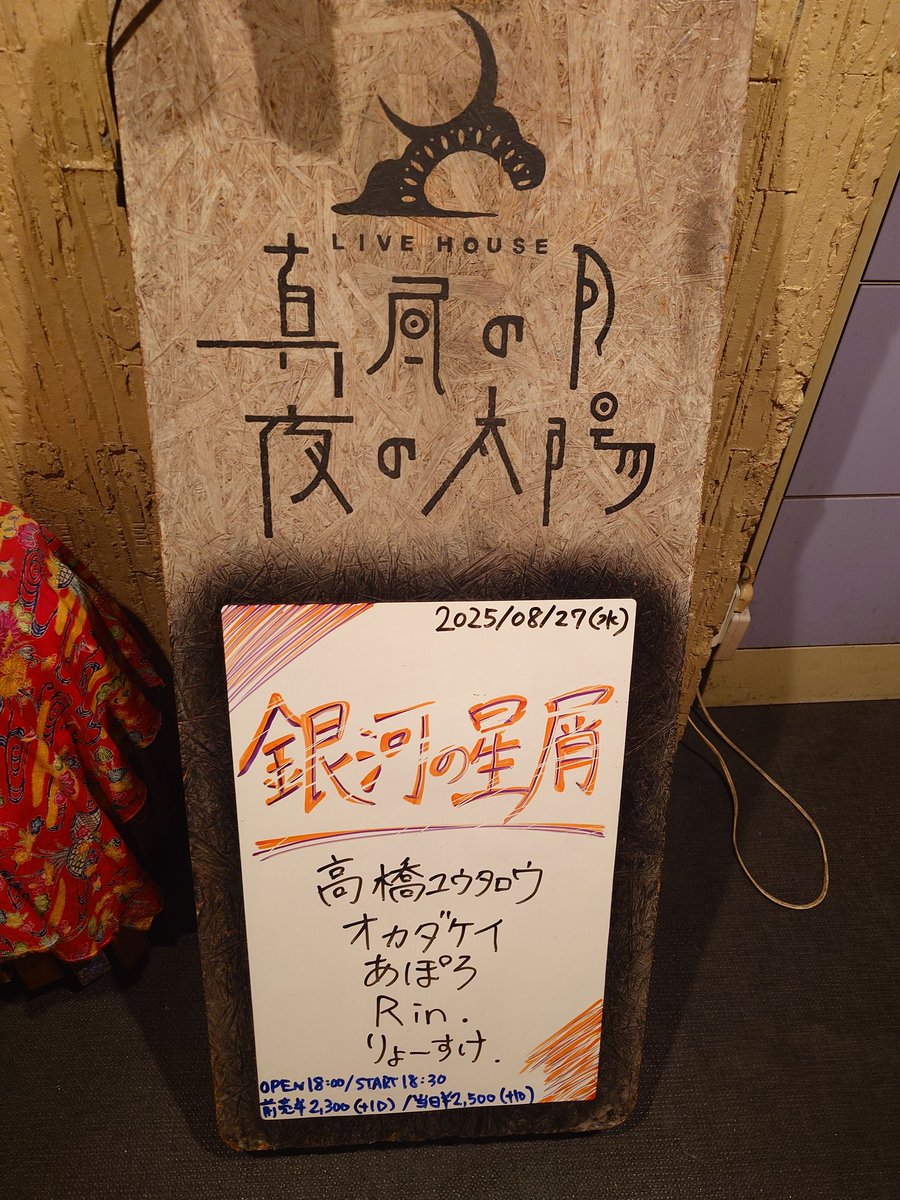 LIVE HOUSE
真昼の月
夜の太陽
2025/08/27(水)
銀河の星屑
高橋ユウタロウ
オカダケイ
あぽろ
Rin.
りょーすけ.
OPEN 18:00/START 18:30
前売¥2,300(+1D)/当日¥2,500(+1D)